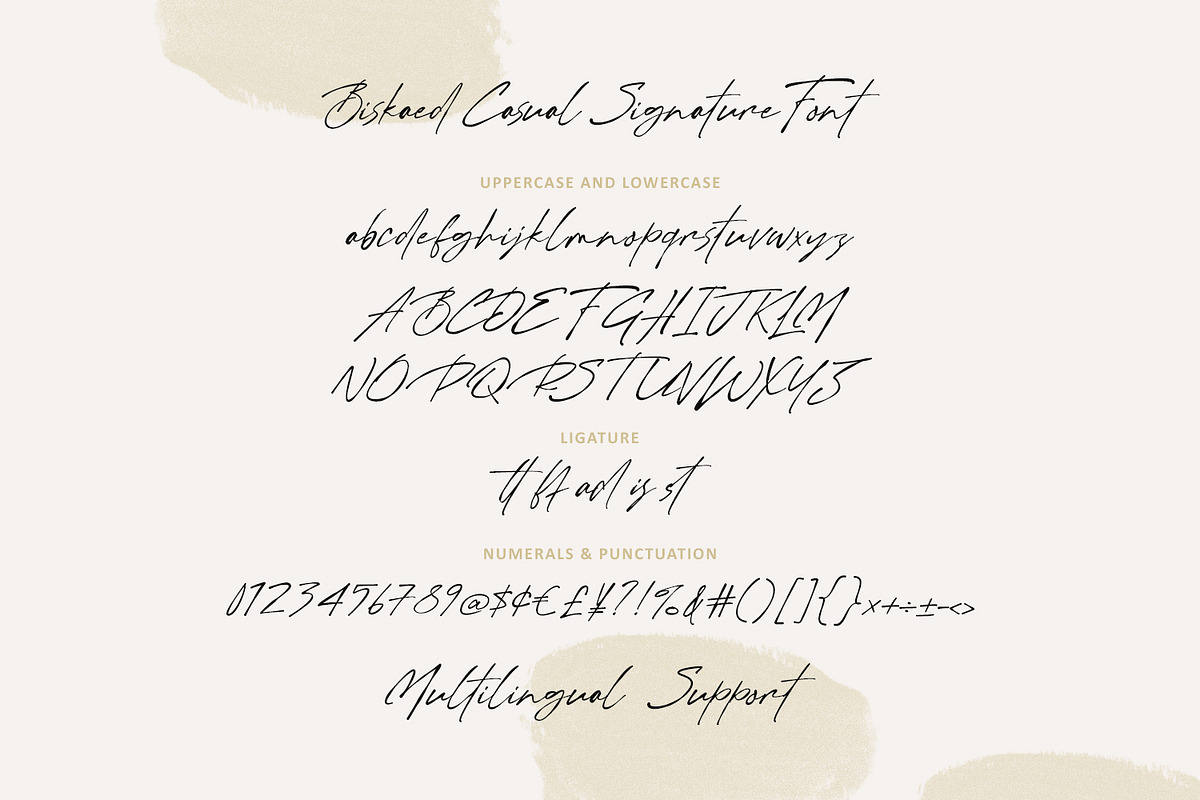 Biskaed Casual Signature Font
UPPERCASE AND LOWERCASE
abcdefghijklmnopqrstuvwxyz
ABCDEFGHIJKLM
NOPQRSTUVWXYZ
LIGATURE
tt ft ad is st
NUMERALS & PUNCTUATION
0123456789@$¢€£¥?!%&#()[]{}×+÷±-<>
Multilingual Support